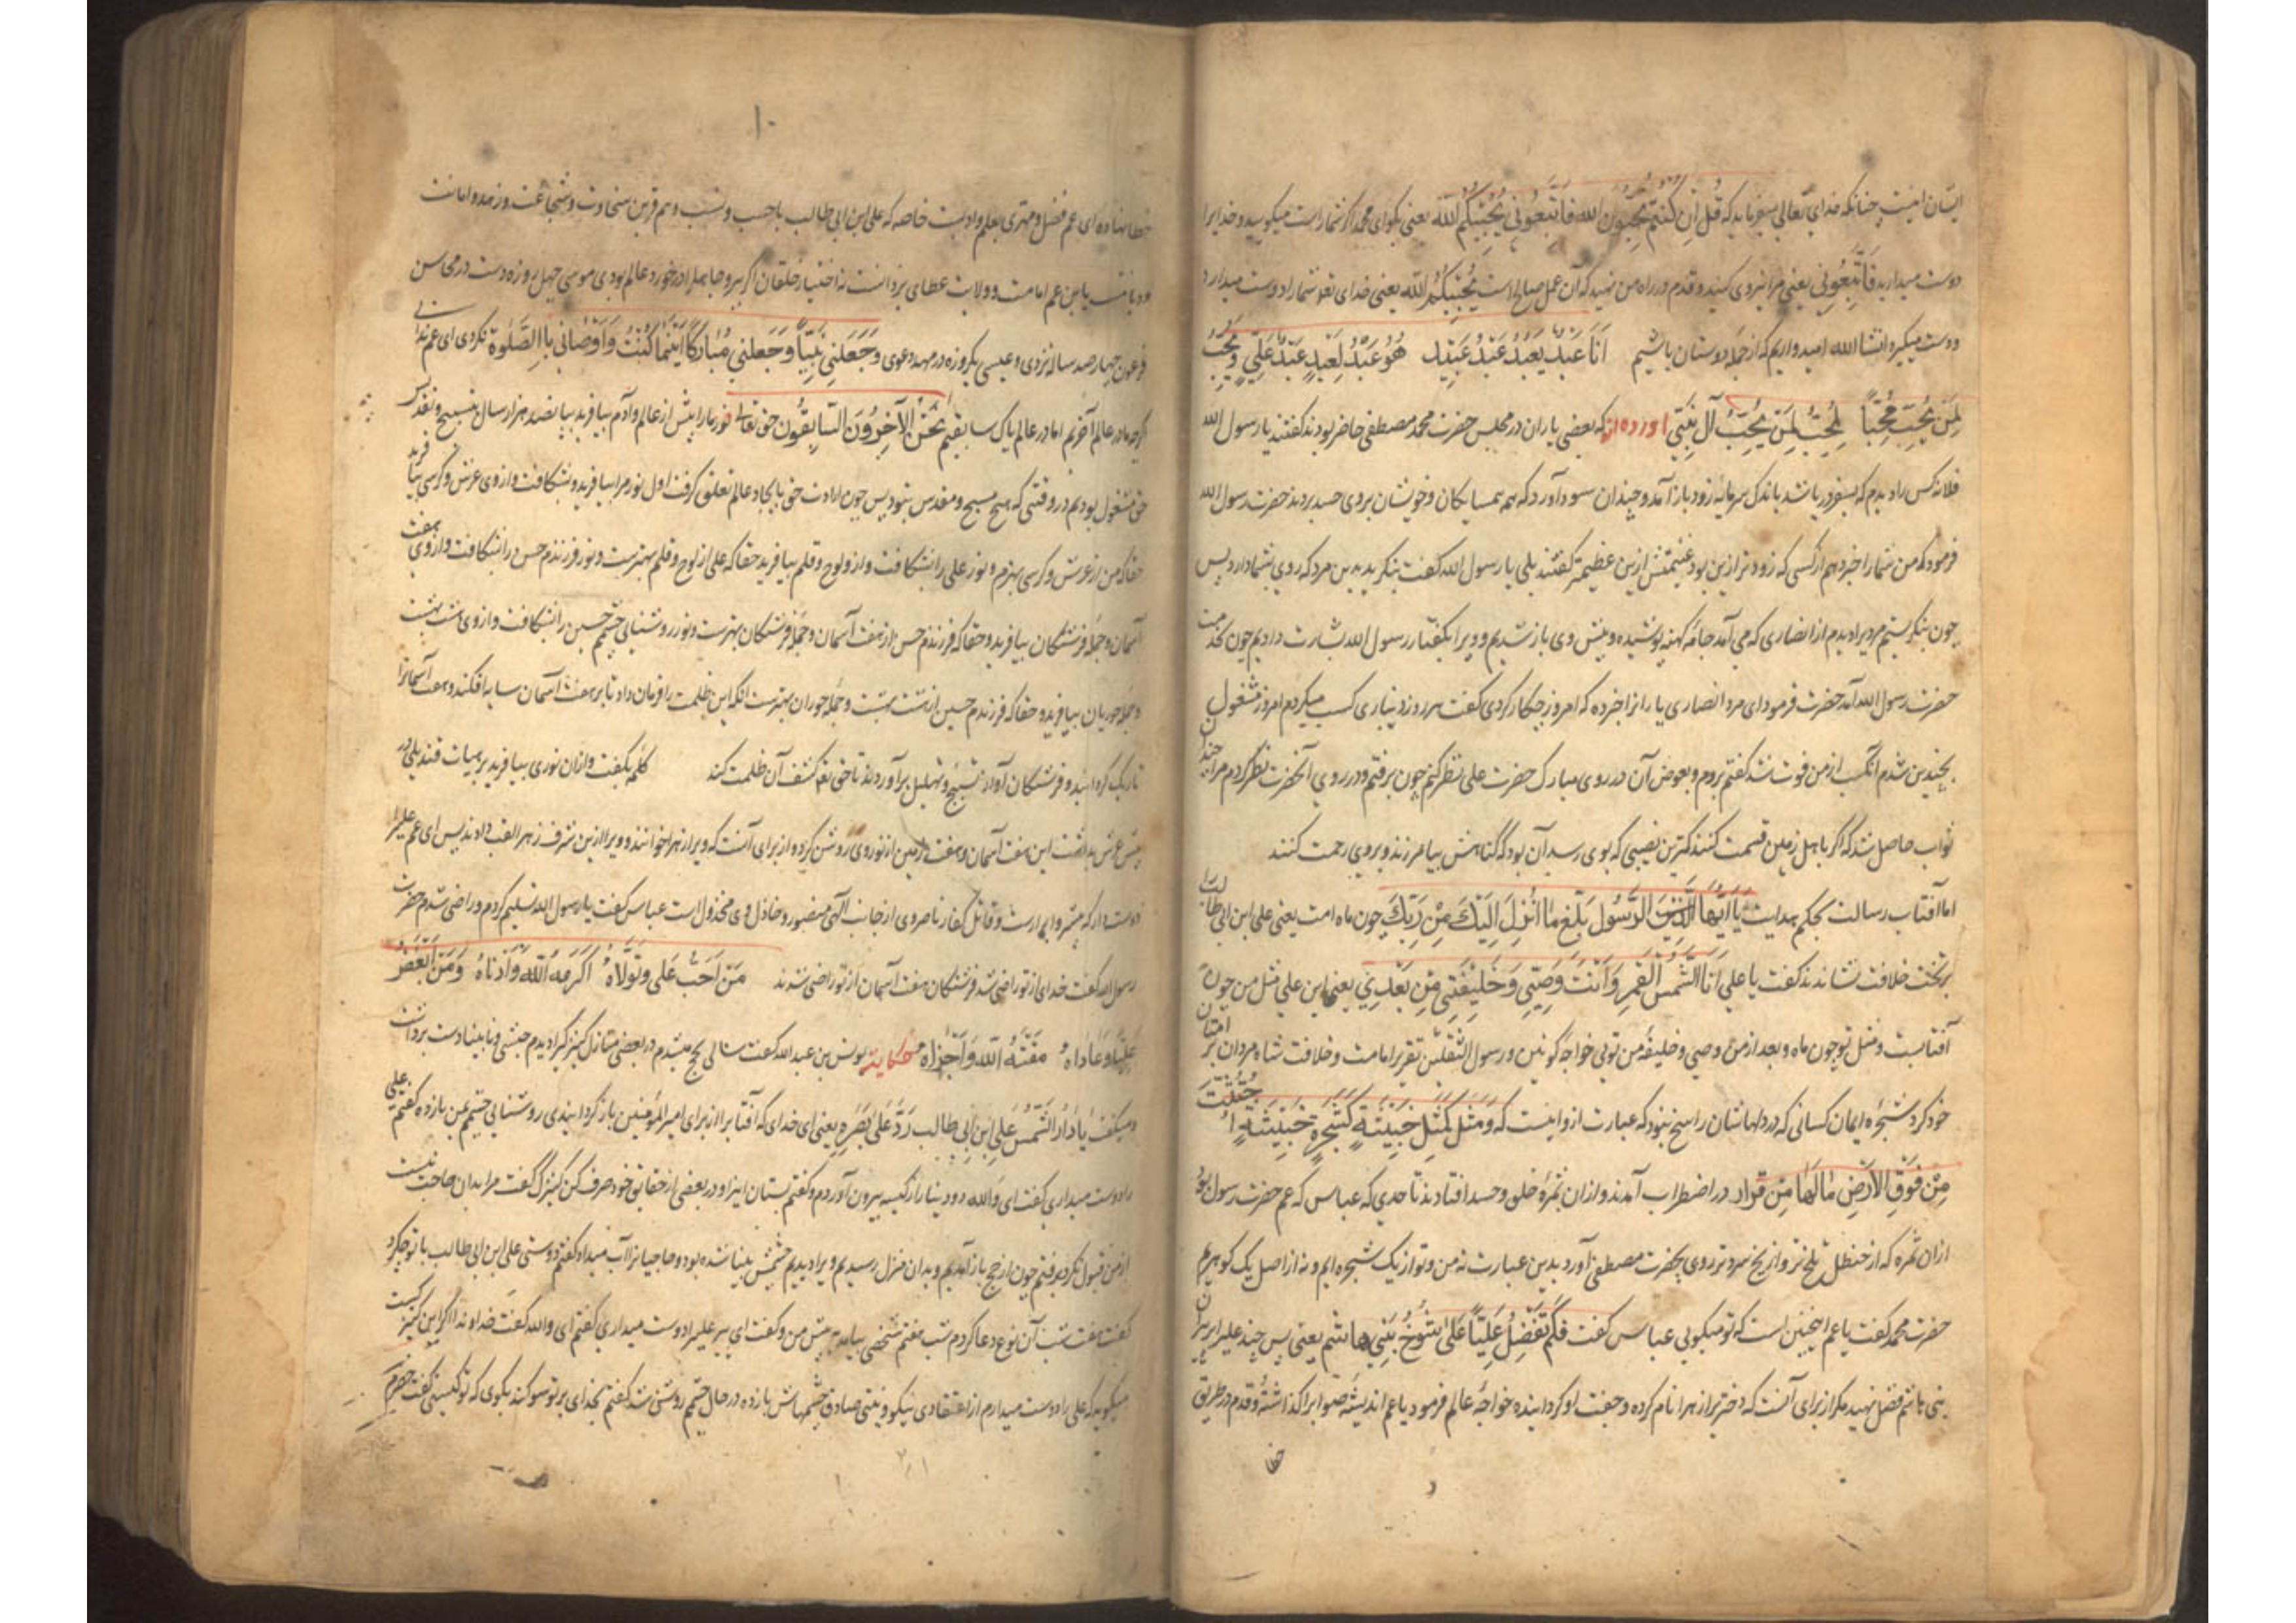 ایشان اینست چنانکه خدای تعالی میفرماید که قُل اِن کُنتُم تُحِبُّون الله فَاتَّبِعُونی یُحبِبکُم الله یعنی بکو ای محمد اکر شما راست میکویید و خدایرا
دوست میدارید فَاتَّبِعُونی یعنی مرا پیروی کنید و قدم در راه من نهید که آن عمل صالح است یُحبِبکُمُ الله یعنی خدای تعو شما را دوست میدارد
دوست میکیرد انشا الله امیدواریم که از جمله دوستان باشیم اَنَا عَبدٌ لِعَبدِ عَبدِ عَبدِ هُوَ عَبدٌ لِعَبدِ عَبدِ عَلِیٍّ وَ یُحِبُّ
لِمَن یُحِبُّ مُحِبًّا لِمُحِبٍّ لِمَن یُحِبُّ آلَ نَبِیّ آورده‌اند که بعضی یاران در مجلس حضرت محمد مصطفی حاضر بودند کفتند یا رسول الله
فلانه کس را دیدم که بسفر دریا شد باندک سرمایه زود باز آمد و چندان سود آورد که همه همسایکان و خویشان بروی حسد بردند حضرت رسول الله
فرمود که من شما را خبر دهم از کسی که زودتر ازین بود و غنیمتش ازین عظیمتر کفتند بلی یا رسول الله کفت بنکرید بدین مرد که روی بشما دارد پس
چون بنکریستم مردیرا دیدم از انصاری که می آمد جامهٔ کهنه پوشیده و پیش وی باز شدیم و ویرا بکفتار رسول الله بشارت دادیم چون بخدمت
حضرت رسول الله آمد حضرت فرمود ای مرد انصاری یارانرا خبر ده که امروز چکار کردی کفت هر روز دیناری کسب میکردم امروز مشغول
بچیدین شدم آنکسب از من فوت شد کفتم بروم و بعوض آن در روی مبارک حضرت علی نظر کنم چون برفتم و در روی آنحضرت نظر کردم مرا چندان
ثواب حاصل شد که اکر باهل زمین قسمت کنند کمترین نصیبی که بوی رسد آن بود که کناهش بیامرزند و بروی رحمت کنند
اما آفتاب رسالت بحکم هدایت یا اَیُّهَا الرَّسُول بَلِّغ ما اُنزِلَ اِلَیکَ مِن رَبِّکَ چون ماه امت یعنی علی ابن ابی طالب را
بر تخت خلافت نشاندند کفت یا علی اَنَا الشَّمس القَمَر وَ اَنتَ وَصِیّی وَ خَلِیفَتِی مِن بَعدِی یعنی ای علی مثل من چون
آفتابست و مثل تو چون ماه و بعد از من وصی و خلیفهٔ من تویی خواجه کونین و رسول الثقلین تقریر امامت و خلافت شاه مردان بر امتان
خود کرد شجرهٔ ایمان کسانی که در دلهاشان راسخ نبود که عبارت ازو اینست که وَ مَثَل کَلِمَةٍ خَبِیثَةٍ کَشَجَرَةٍ خَبِیثَةٍ اجتُثَّت
مِن فَوقِ الاَرضِ مَا لَهَا مِن قَرار در اضطراب آمدند و ازان ثمرهٔ خلق و حسد افتادند تا حدی که عباس که عم حضرت رسول بود
ازان ثمره که از حنظل تلخ‌تر و از یخ سردتر روی بحضرت مصطفی آورد بدین عبارت نه من و تو از یک شجره ایم و نه از اصل یک کوهریم
حضرت محمد کفت یا عم اینچنین است که تو میکویی عباس کفت فلِمَ تُفَضِّلُ عَلِیًّا عَلی شُیُوخ بَنِی هاشم یعنی پس چند علیرا بر پیران
بنی هاشم فضل نهید مکر از برای آنست که دختر ترا زهرا نام کرده و جفت او کردانیده خواجهٔ عالم فرمود یا عم اندیشهٔ صوابرا کذاشته و قدم در طریق
خطا
۱۰
خطا نهاده ای عم فضل و مهتری بعلم و ادبست خاصه که علی ابن ابی طالب با حسب و نسب و هم قرین سخاوت و شجاعت و زهد و امانت
و دیانت یا بن عم امامت و ولایت عطای یزدانست نه اختیار خلقان اکر در خورد عالم بودی موسی چهل روزه دست در محاسن
فرعون چهار صد ساله نزدی و عیسی یکروزه در مهد دعوی وَ جَعَلَنی نَبِیًّا وَ جَعَلنی مُبَارَکًا اَینَمَا کُنتُ وَ اَوصَانی بِالصَّلوة نکردی ای عم
کرچه در عالم آخریم اما در عالم پاک سابقیم نَحنُ الآخِرُونَ السَّابِقُون حق تعالی نور ما را پیش از عالم و آدم بیافرید بپانصد هزار سال بتسبیح و تقدیس
حق مشغول بودیم در وقتی که هیچ مسبح و مقدس نبود پس چون ارادت حق بایجاد عالم تعلق کرفت اول نور مرا بیافرید و بشکافت و از وی عرش و کرسی بیافرید
حقا که من از عرش و کرسی بهترم و نور علی را بشکافت و ازو لوح و قلم بیافرید حقا که علی از لوح و قلم بهترست و نور فرزندم حسن را بشکافت و از وی هفت
آسمان و جمله فرشتکان بیافرید و حقا که فرزندم حسن از هفت آسمان و جمله فرشتکان بهترست و نور روشنایی چشمم حسین را بشکافت و از وی هشت بهشت
و جمله حوریان بیافرید و حقا که فرزندم حسین از هشت بهشت و جمله حوران بهترست انکه این ظلمت را فرمان داد تا بر هفت آسمان سایه افکند و هفت آسمانرا
تاریک کردانید و فرشتکان آواز تسبیح و تهلیل برآوردند تا حق تعو کشف آن ظلمت کند کلمه بکفت و ازان نوری بیافرید بر هیات قندیلی در
پیش عرش بداشت این هفت آسمان و هفت زمین از نور وی روشن کرد و از برای آنست که ویرا زهرا خوانند و ویرا ازین شرف زهرا لقب دادند پس ای عم علیرا
دوست دار که و قاتل کفار ناصر وی از جانب الهی منصور و خاذل وی مخذول است عباس کفت یا رسول الله تسلیم کردم و راضی شدم حضرت
رسول الله کفت خدای از تو راضی شد فرشتکان هفت آسمان از تو راضی شدند مَن اَحَبَّ عَلی وَ تَوَلَّاهُ اَکرَمَهُ اللهُ وَ اَدنَاهُ وَ مَن اَبغَضَ
عَلِیًّا وَ عَادَاهُ مَقَتَهُ اللهُ وَ اَخزَاه حکایة یونس بن عبد الله کفت سالی بحج میشدم در بعضی منازل کنیزکیرا دیدم حبشی و نابینا دست برداشت
و میکفت یَا رَادَّ الشَّمسِ عَلی ابنِ اَبِی طالب رُدَّ عَلَیَّ بَصَری یعنی ای خدای که آفتابرا از برای امیر المؤمنین باز کردانیدی روشنایی چشمم بمن باز ده کفتم علی
را دوست میداری کفت ای والله دو دینار از کیسه بیرون آوردم و کفتم بستان اینرا و در بعضی از حقایق خود صرف کن کنیزک کفت مرا بدان حاجت نیست
از من قبول نکرد برفتم چون از حج باز آمدیم و بدان منزل رسیدیم ویرا دیدیم چشمش بینا شده بود و حاجیانرا آب میداد کفتم دوستی علی ابن ابی طالب با تو چکرد
کفت هفت شب آن نوع دعا کردم شب هفتم شخصی بیامد پیش من و کفت ای پیر علیرا دوست میداری کفتم ای والله کفت خداوندا اکر این کنیزک
میکوید که علی را دوست میدارم از اعتقادی نیکو و نیتی صادق چشمهاش باز ده در حال چشمم روشن شد کفتم بخدای بر تو سوکند بکوی که تو کیستی کفت خضرم